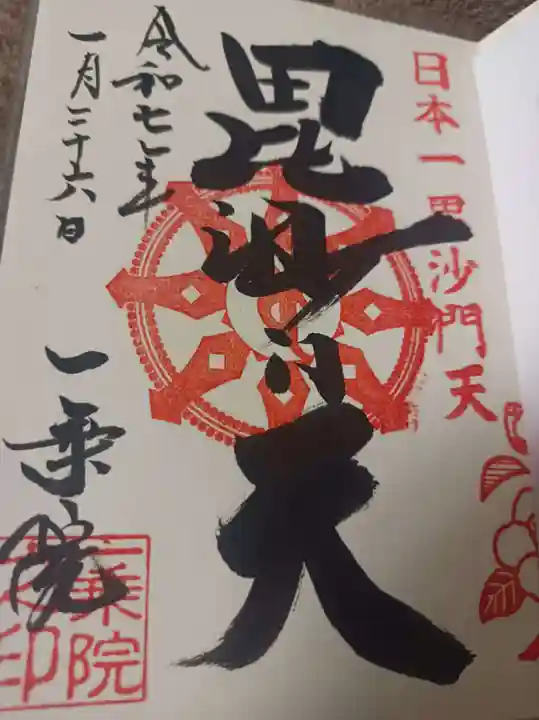 日本一毘沙門天
毘沙門天
令和七年
一月二十六日
一乗院
一乗院
之印